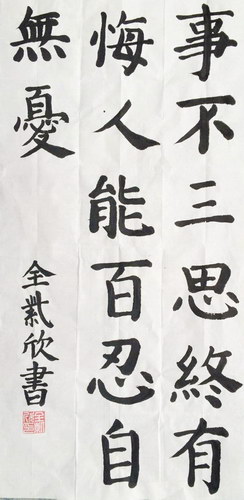 事不三思終有
悔人能百忍自
無憂
全
欣書